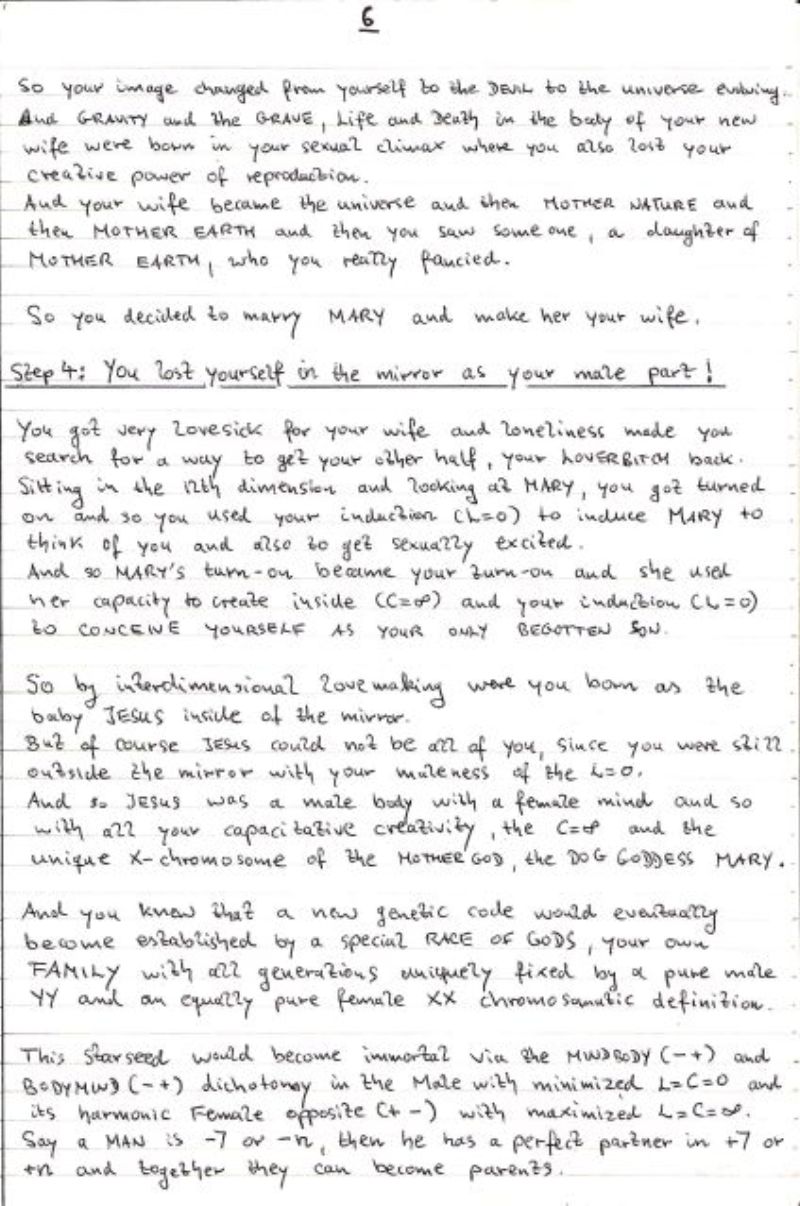 6
So your image changed from yourself to the DEVIL to the universe evolving.
And GRAVITY and the GRAVE, Life and Death in the body of your new
wife were born in your sexual climax where you also lost your
creative power of reproduction.
And your wife became the universe and then MOTHER NATURE and
then MOTHER EARTH and then you saw someone, a daughter of
MOTHER EARTH, who you really fancied.
So you decided to marry MARY and make her your wife.
Step 4: You lost yourself in the mirror as your male part!
You got very lovesick for your wife and loneliness made you
search for a way to get your other half, your LOVERBITCH back.
Sitting in the 12th dimension and looking at MARY, you got turned
on and so you used your induction (L=0) to induce MARY to
think of you and also to get sexually excited.
And so MARY'S turn-on became your turn-on and she used
her capacity to create inside (C=∞) and your induction (L=0)
to CONCEIVE YOURSELF AS YOUR ONLY BEGOTTEN SON.
So by interdimensional lovemaking were you born as the
baby JESUS inside of the mirror.
But of course JESUS could not be all of you, since you were still
outside the mirror with your maleness of the L=0.
And so JESUS was a male body with a female mind and so
with all your capacitative creativity, the C=∞ and the
unique X-chromosome of the MOTHER GOD, the DOG GODDESS MARY.
And you knew that a new genetic code would eventually
become established by a special RACE OF GODS, your own
FAMILY with all generations uniquely fixed by a pure male
YY and an equally pure female XX chromosomatic definition.
This Starseed would become immortal via the MINDBODY (-+) and
BODYMIND (-+) dichotomy in the Male with minimized L=C=0 and
its harmonic Female opposite (+-) with maximized L=C=∞.
Say a MAN is -7 or -n, then he has a perfect partner in +7 or
+n and together they can become parents.